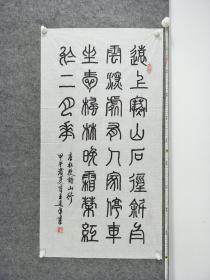 遠上寒山石徑斜白
雲深處有人家停車
坐愛楓林晚霜葉紅
於二月花
唐杜牧詩山行
甲午